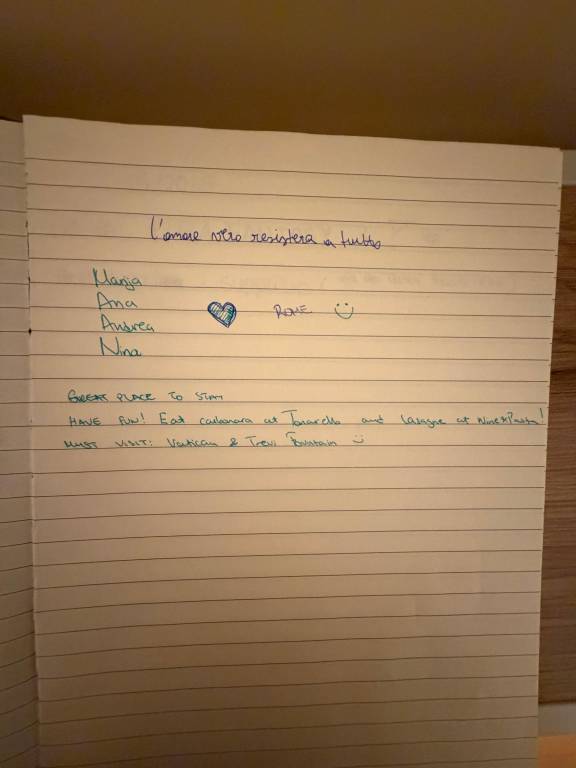 L'amore vero resistera a tutto
Manja
Ana
Andrea
Nina
ROME
GREAT PLACE TO STAY
HAVE FUN! Eat carbonara at Tonarello and lasagne at Wine&Pasta!
MUST VISIT: Vatican & Trevi Fountain